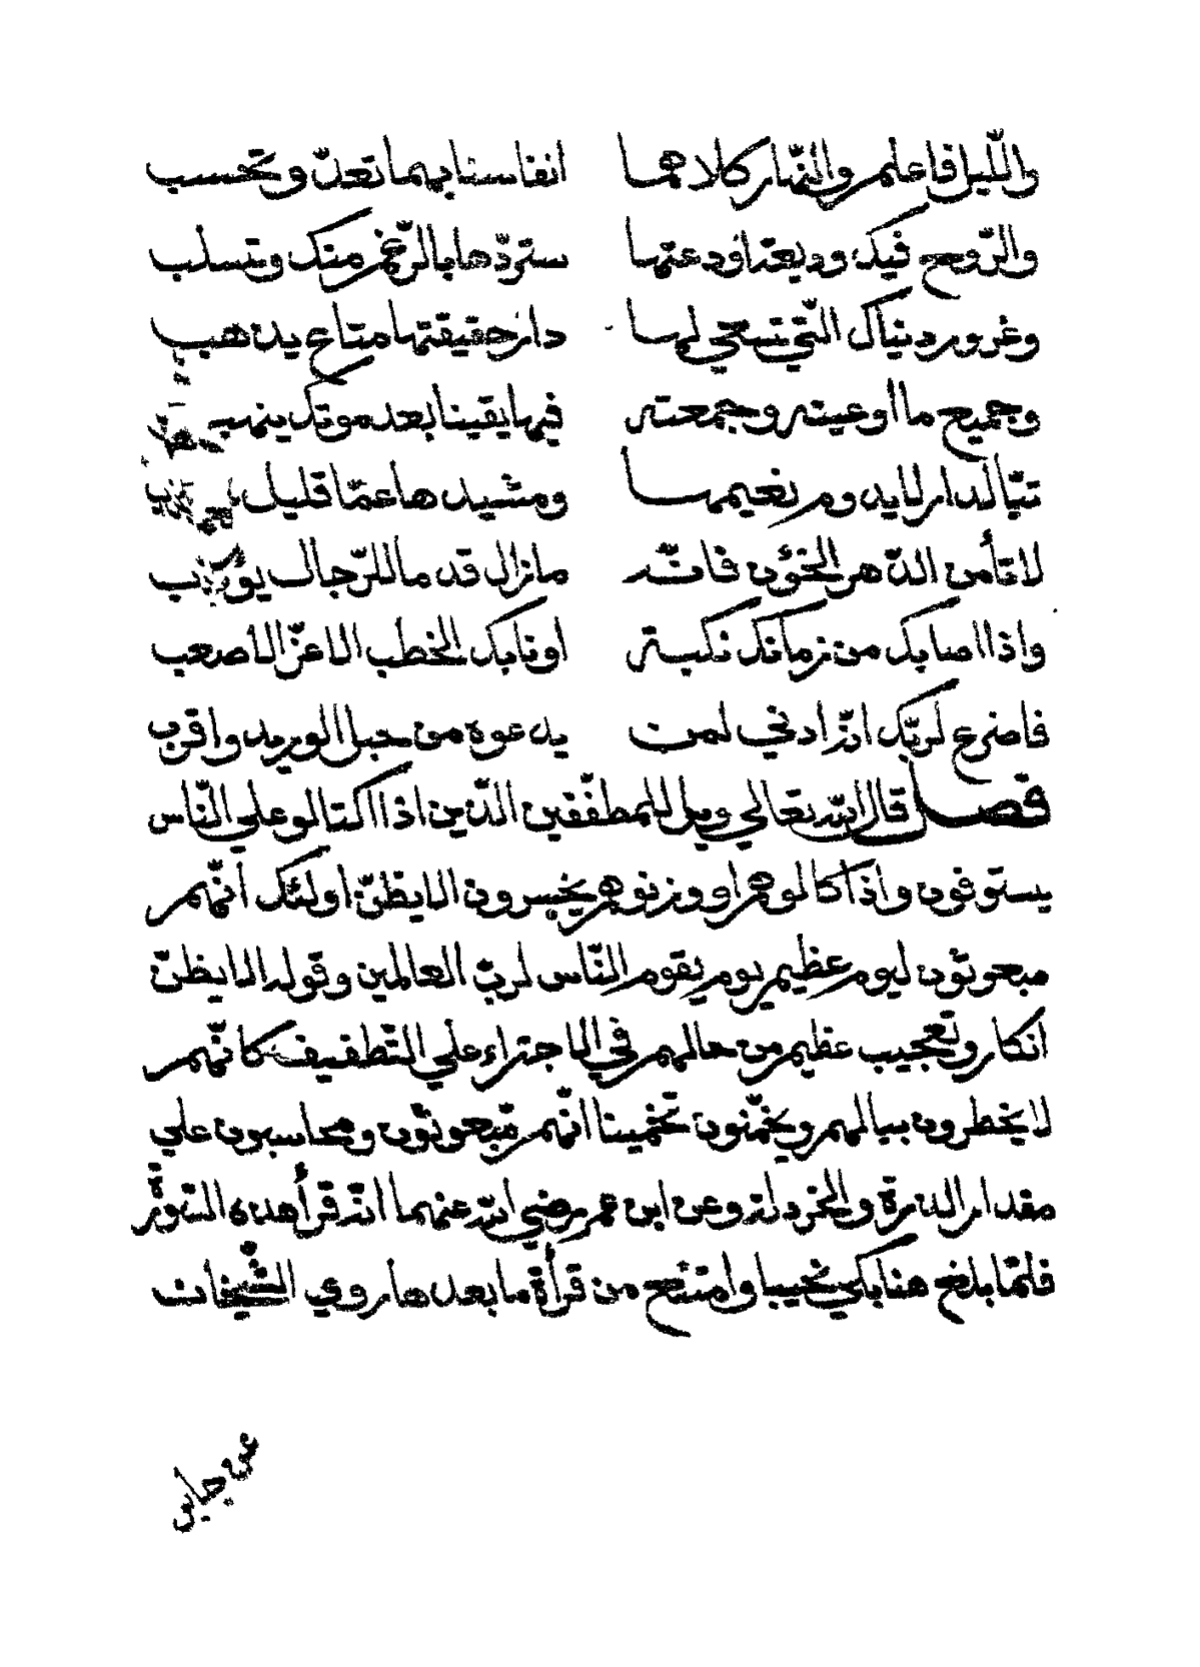 واللّيل فاعلم والنّهار كلاهما انفاسنا بهما تعدّ وتحسب
والرّوح فيك وديعة اودعتها ستردّها بالرّغم منك وتسلب
وغرور دنياك الّتي تسعي لها دار حقيقتها متاع يذهب
وجميع ما اوعيته وجمعته فيها يقينا بعد موتك ينهب
تبّا لدار لا يدوم نعيمها ومشيدها عمّا قليل
لا تأمن الدّهر الخؤن فانّه ما زال قدما للرّجال يؤدّب
واذا اصابك من زمانك نكبة او نابك الخطب الاعزّ الاصعب
فاضرع لربّك انّه ادني لمن يدعوه من حبل الوريد واقرب
فصل قال الله تعالي ويل للمطفّفين الّذين اذا اكتالو علي النّاس
يستوفون واذا كالوهم او وزنوهم يخسرون الا يظنّ اولئك انّهم
مبعوثون ليوم عظيم يوم يقوم النّاس لربّ العالمين وقوله الا يظنّ
انكار وتعجيب عظيم من حالهم في الاجتراء علي التّطفيف كانّهم
لا يخطرون ببالهم ويخمّنون تخمينا انّهم مبعوثون ومحاسبون علي
مقدار الذرة والخردلة وعن ابن عمر رضي الله عنهما انّه قرأ هذه السّورة
فلمّا بلغ هنا بكي نحيبا وامتنع من قرأة ما بعدها روي الشّيخان
عن جابر